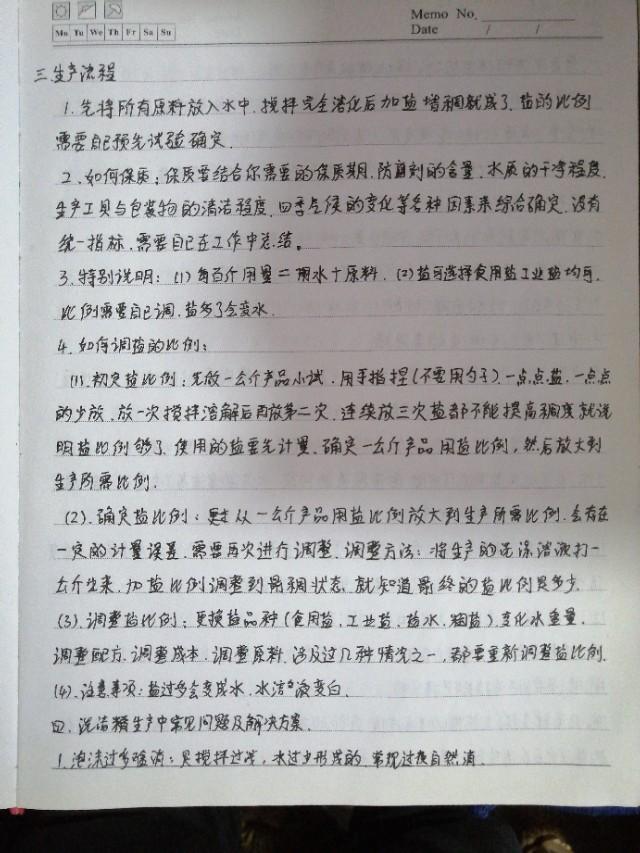 Memo No.
Mo Tu We Th Fr Sa Su
Date / /
三.生产流程
1.先将所有原料放入水中.搅拌完全溶化后加盐增稠就成了.盐的比例
需要自己预先试验确定.
2.如何保质:保质要结合你需要的保质期.防腐剂的含量.水质的干净程度.
生产工具与包装物的清洁程度.四季气候的变化等各种因素来综合确定.没有
统一指标.需要自己在工作中总结。
3.特别说明:(1)每百斤用量=用水+原料.(2)盐可选择食用盐工业盐均可.
比例需要自己调.盐多了会变水.
4.如何调盐的比例:
(1).初定盐比例:先做一公斤产品小试.用手指捏(不要用勺子)一点点盐.一点点
的少放.放一次搅拌溶解后再放第二次.连续放三次盐都不能提高稠度就说
明盐比例够了.使用的盐要先计量.确定一公斤产品用盐比例,然后放大到
生产所需比例.
(2).确定盐比例:从一公斤产品用盐比例放大到生产所需比例.会存在
一定的计量误差.需要再次进行调整.调整方法:将生产的洗涤溶液打一
公斤出来.加盐比例调整到最稠状态.就知道最终的盐比例是多少.
(3).调整盐比例:更换盐品种(食用盐.工业盐.盐水.粗盐).变化水重量.
调整配方.调整成本.调整原料.涉及过几种情况之一,都要重新调整盐比例.
(4).注意事项:盐过多会变成水.水溶液变白.
四.洗洁精生产中常见问题及解决方案.
1.泡沫过多:是搅拌过,水过少形成的.常规过夜自然消.